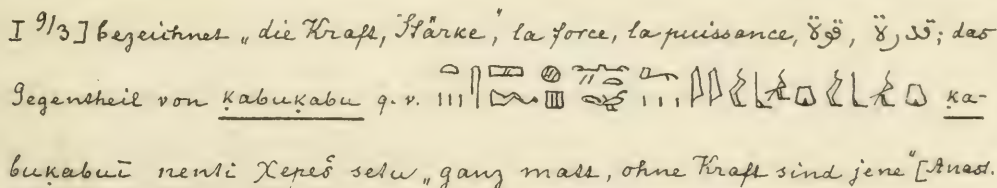 I 9/3] bezeichnet „die Kraft, Stärke“, la force, la puissance, قوّة, قدرة; das
Gegentheil von ḳabuḳabu q. v. ḳa-
buḳabuī nenti χepeš setu „ganz matt, ohne Kraft sind jene“ [Anast.